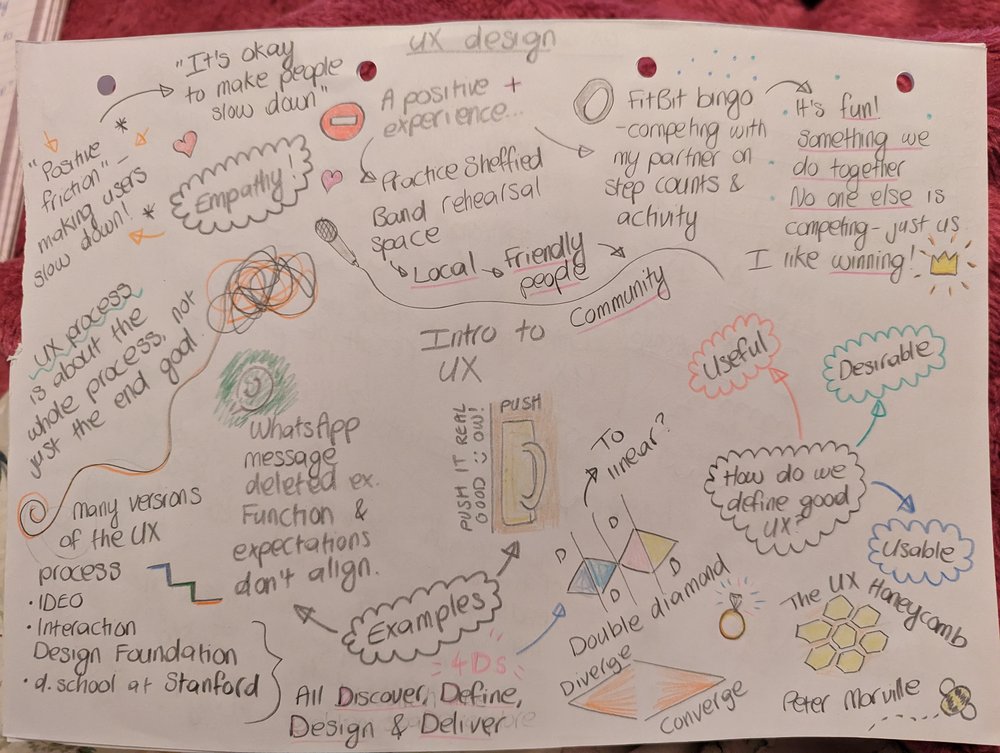 UX design
"It's okay
to make people
slow down"
"Positive
friction" -
making users
slow down!
Empathy!
A positive +
experience...
Practice Sheffied
Band rehearsal
space
Local
Friendly
people
Community
FitBit bingo
-competing with
my partner on
step counts &
activity
It's fun!
Something we
do together
No one else is
competing - just us
I like winning!
UX process
is about the
whole process, not
just the end goal
Intro to
UX
WhatsApp
message
deleted ex.
Function &
expectations
don't align.
PUSH IT REAL
GOOD OW!
PUSH
To
linear?
Useful
Desirable
How do we
define good
UX?
Usable
many versions
of the UX
process
• IDEO
• Interaction
Design Foundation
• d.school at Stanford
Examples
4DS
All Discover, Define,
Design & Deliver
D
D
D
D
Double diamond
Diverge
Converge
The UX Honeycomb
Peter Morville